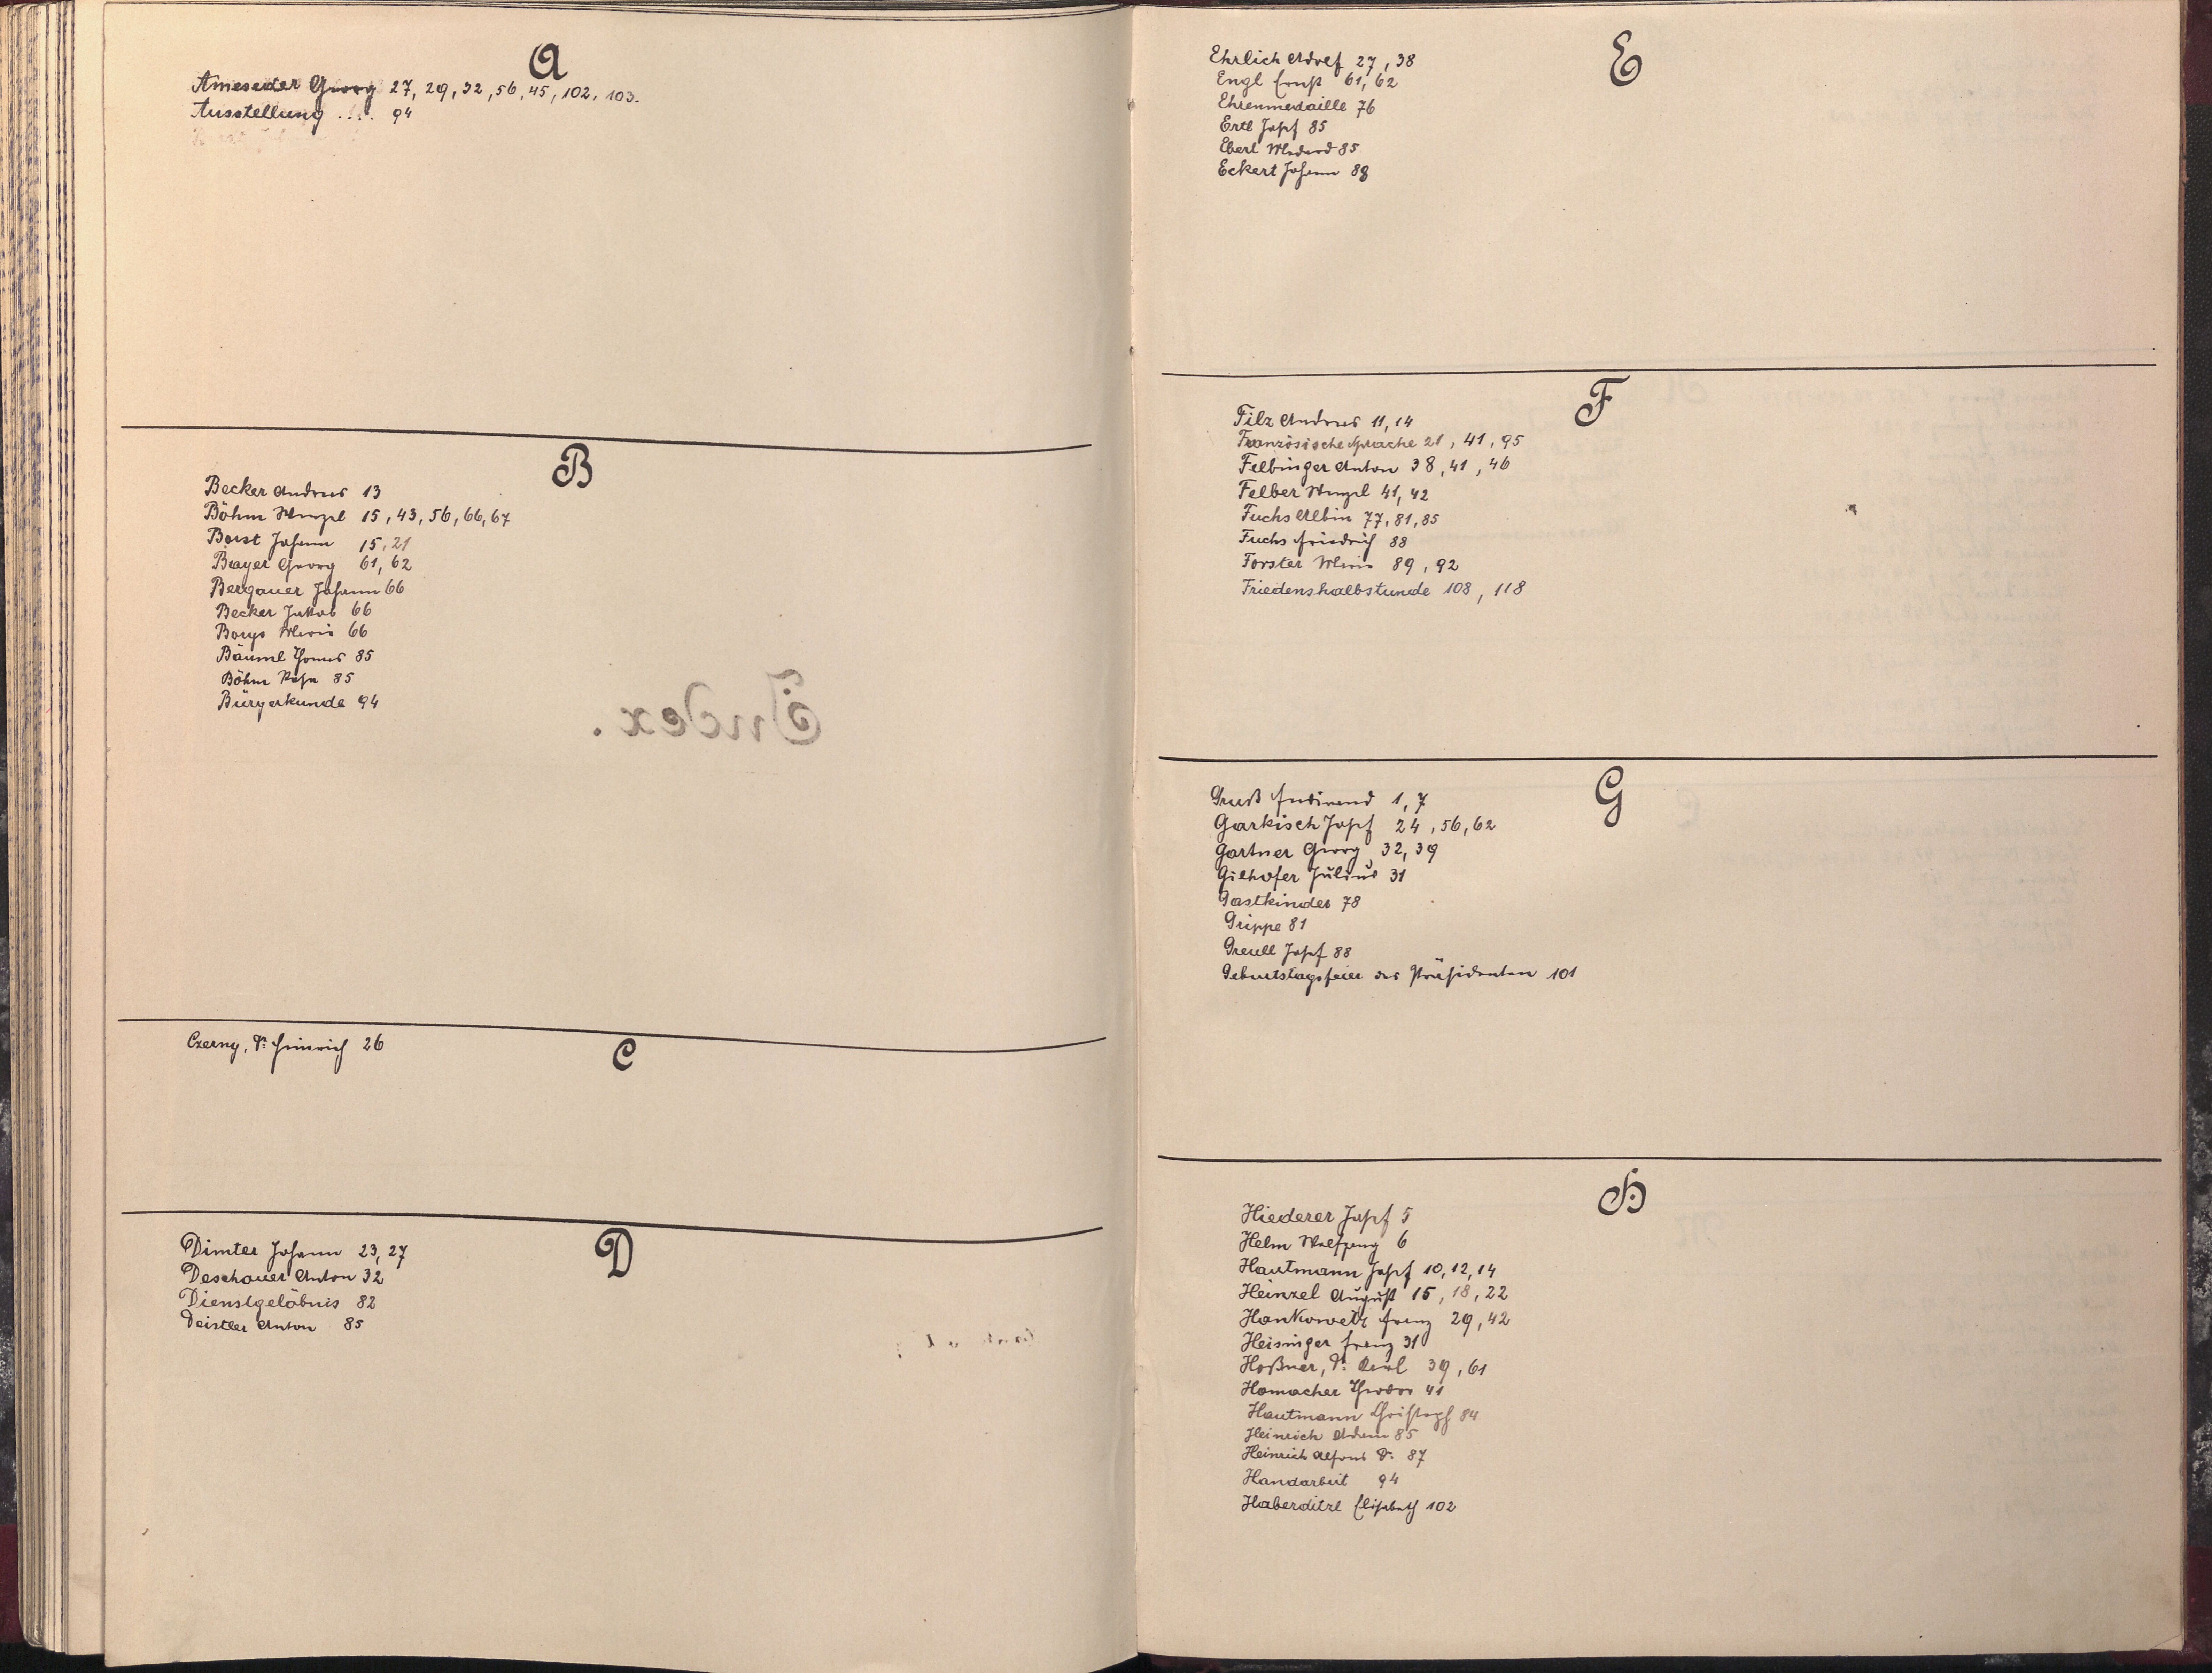 A
Ameseder Georg 27, 29, 32, 56, 45, 102, 103.
Ausstellung ... 94
B
Becker Andreas 13
Böhm Wenzel 15, 43, 56, 66, 67
Borst Johann 15, 21
Bayer Georg 61, 62
Bergauer Johann 66
Becker Jakob 66
Borys Maria 66
Bäuml Thomas 85
Böhm Rosa 85
Bürgerkunde 94
Index.
C
Czerny, Dr. Heinrich 26
D
Dimter Johann 23, 27
Deschauer Anton 32
Dienstgelöbnis 82
Deistler Anton 85
E
Ehrlich Adolf 27, 38
Engl Ernst 61, 62
Ehrenmedaille 76
Ertl Josef 85
Eberl 85
Eckert Johann 88
F
Filz Andreas 11, 14
Französische Sprache 21, 41, 95
Felbinger Anton 38, 41, 46
Felber Wenzel 41, 42
Fuchs Albin 77, 81, 85
Fuchs Friedrich 88
Forster Maria 89, 92
Friedenshalbstunde 108, 118
G
Gruß Ferdinand 1, 7
Garkisch Josef 24, 56, 62
Gartner Georg 32, 39
Gilhofer Julius 31
Gastkinder 78
Grippe 81
Greull Josef 88
Geburtstagsfeier des Präsidenten 101
H
Hiederer Josef 5
Helm Wolfgang 6
Hautmann Josef 10, 12, 14
Heinzel August 15, 18, 22
Hankowetz Franz 29, 42
Heisinger Franz 31
Hoßner, Dr. Karl 39, 61
Hamacher Theodor 41
Hautmann Christoph 84
Heinrich Adam 85
Heinrich Alfons Dr. 87
Handarbeit 94
Haberditzl Elisabeth 102